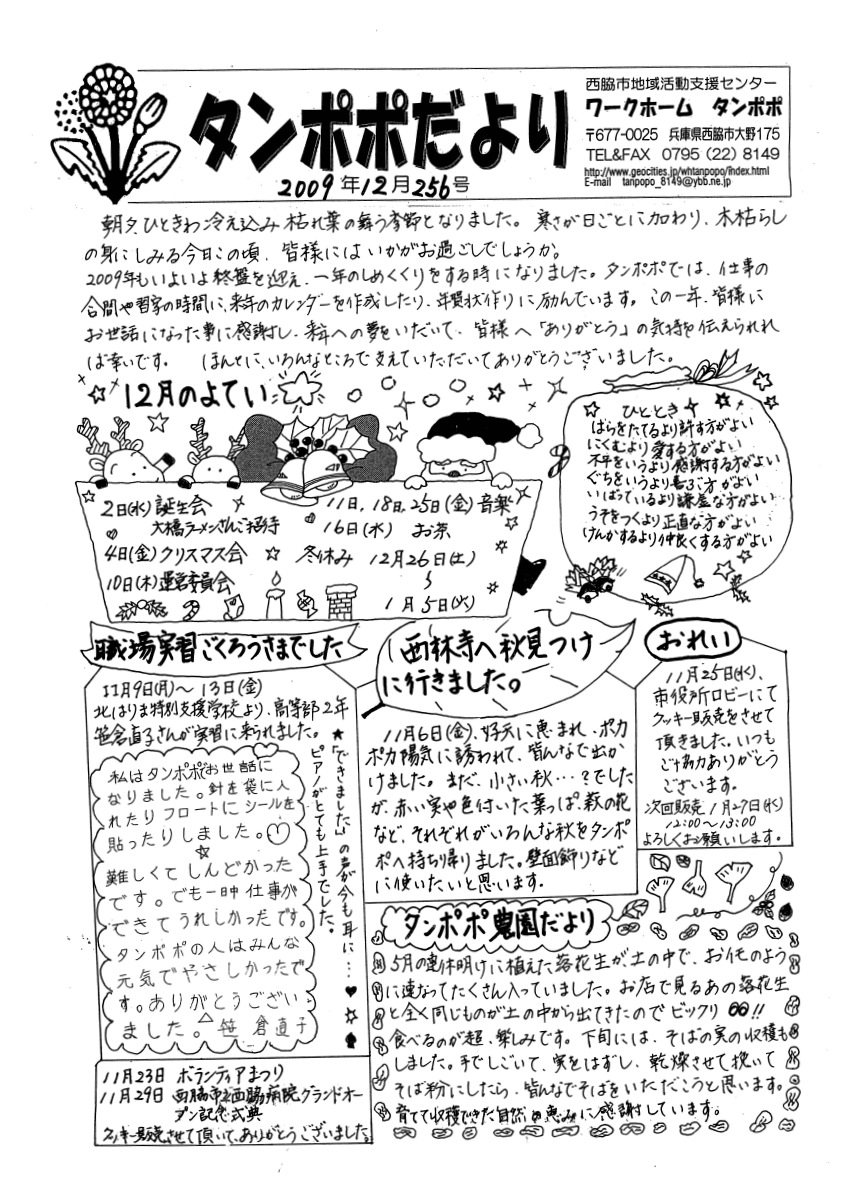 タンポポだより
2009年12月256号
西脇市地域活動支援センター
ワークホーム タンポポ
〒677-0025 兵庫県西脇市大野175
TEL&FAX 0795(22)8149
http://www.geocities.jp/whtanpopo/index.html
E-mail tanpopo_8149@ybb.ne.jp
朝夕、ひときわ冷え込み枯れ葉の舞う季節となりました。寒さが日ごとに加わり、木枯らし
の身にしみる今日この頃、皆様にはいかがお過ごしでしょうか。
2009年もいよいよ終盤を迎え、一年のしめくくりをする時になりました。タンポポでは、仕事の
合間や習字の時間に、来年のカレンダーを作成したり、年賀状作りに励んでいます。この一年、皆様に
お世話になった事に感謝し、来年への夢をいだいて、皆様へ「ありがとう」の気持を伝えられれ
ば幸いです。 ほんとに、いろんなところで支えていただいてありがとうございました。
12月のよてい
2日(水)誕生会
大橋ラーメンさんご招待
4日(金)クリスマス会
10日(木)運営委員会
11日,18日,25日(金)音楽
16日(水) お茶
冬休み 12月26日(土)
〜
1月5日(火)
ひととき
はらをたてるより許す方がよい
にくむより愛する方がよい
不平をいうより感謝する方がよい
ぐちをいうより喜ぶ方がよい
いばっているより謙虚な方がよい
うそをつくより正直な方がよい
けんかするより仲良くする方がよい
職場実習ごくろうさまでした
11月9日(月)〜13日(金)
北はりま特別支援学校より、高等部2年
笹倉直子さんが実習に来られました。
私はタンポポお世話に
なりました。針を袋に入
れたりフロートにシールを
貼ったりしました。
難しくてしんどかった
です。でも一日中仕事が
できてうれしかったです。
タンポポの人はみんな
元気でやさしかったで
す。ありがとうござい
ました。 笹倉直子
★「できました」の声が今も耳に…♥
ピアノがとても上手でした。
11月23日 ボランティアまつり
11月29日 西脇市立西脇病院グランドオー
プン記念式典
クッキー販売させて頂いて、ありがとうございました。
西林寺へ秋見つけ
に行きました。
11月6日(金)、好天に恵まれ、ポカ
ポカ陽気に誘われて、皆んなで出か
けました。まだ、小さい秋…?でした
が、赤い実や色付いた葉っぱ、萩の花
など、それぞれがいろんな秋をタンポ
ポへ持ち帰りました。壁面飾りなど
に使いたいと思います。
おれい
11月25日(水)、
市役所ロビーにて
クッキー販売をさせて
頂きました。いつも
ご協力ありがとう
ございます。
次回販売1月27日(水)
12:00〜13:00
よろしくお願いします。
タンポポ農園だより
5月の連休明けに植えた落花生が、土の中で、お化のよう
に連なってたくさん入っていました。お店で見るあの落花生
と全く同じものが土の中から出てきたのでビックリ!!
食べるのが超、楽しみです。下旬には、そばの実の収穫も
しました。手でしごいて、実をはずし、乾燥させて挽いて
そば粉にしたら、皆んなでそばをいただこうと思います。
育てて収穫できた自然の恵みに感謝しています。